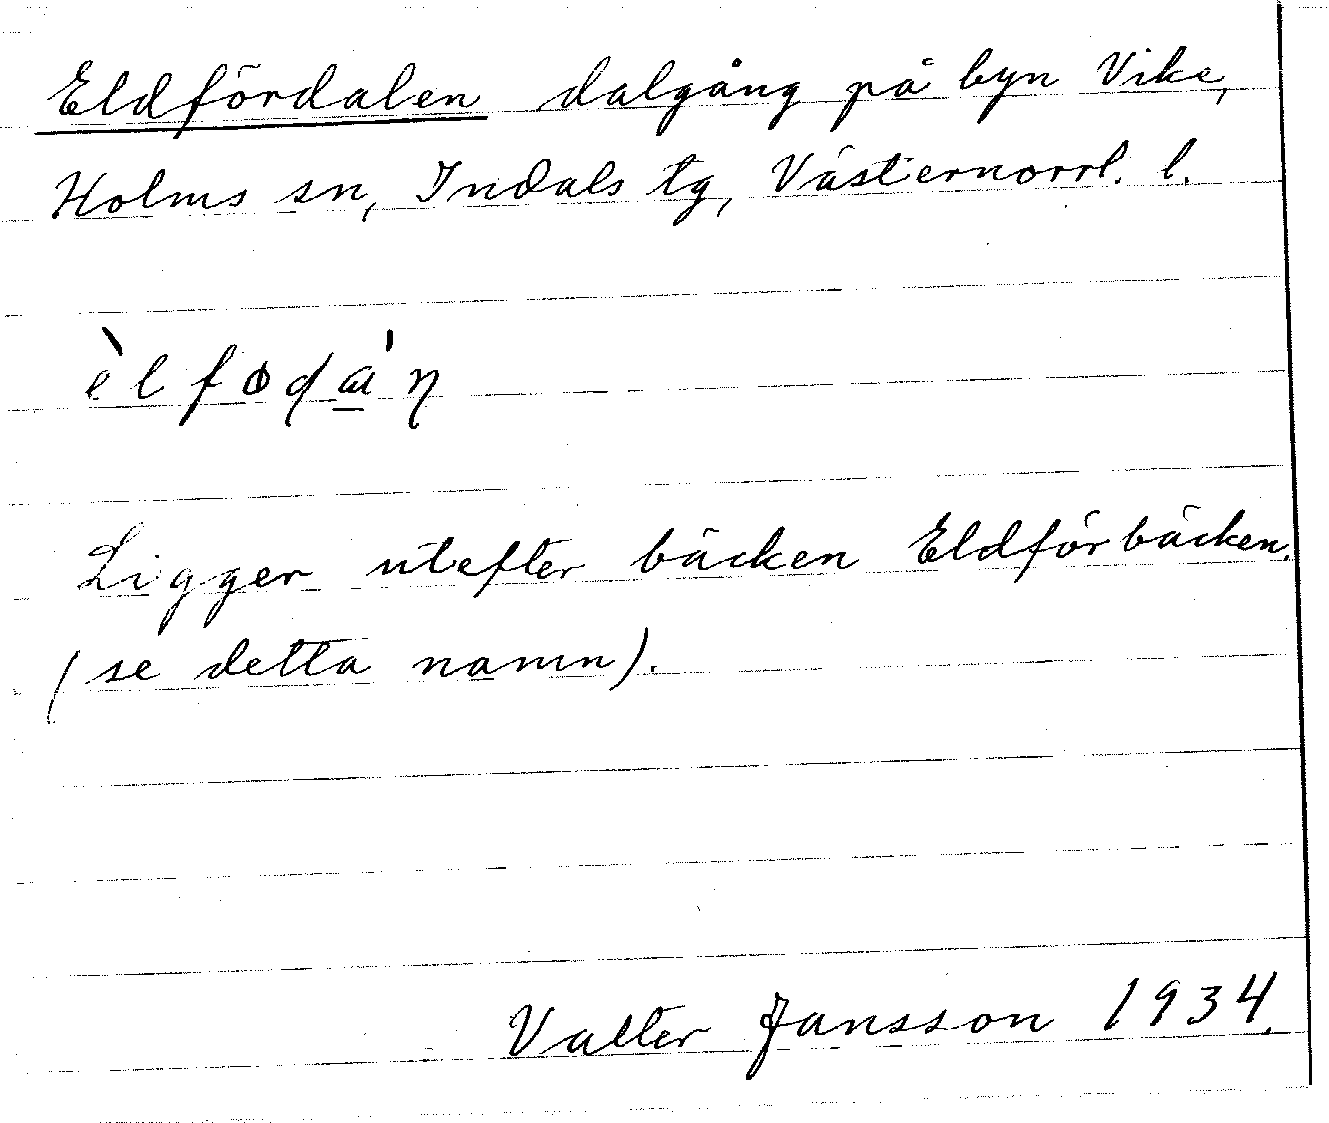 Eldfördalen dalgång på byn Vike,
Holms sn, Indals tg, Västernorrl. l.
èlfɵda̲'n
Ligger utefter bäcken Eldförbäcken.
(se detta namn).
Valter Jansson 1934.